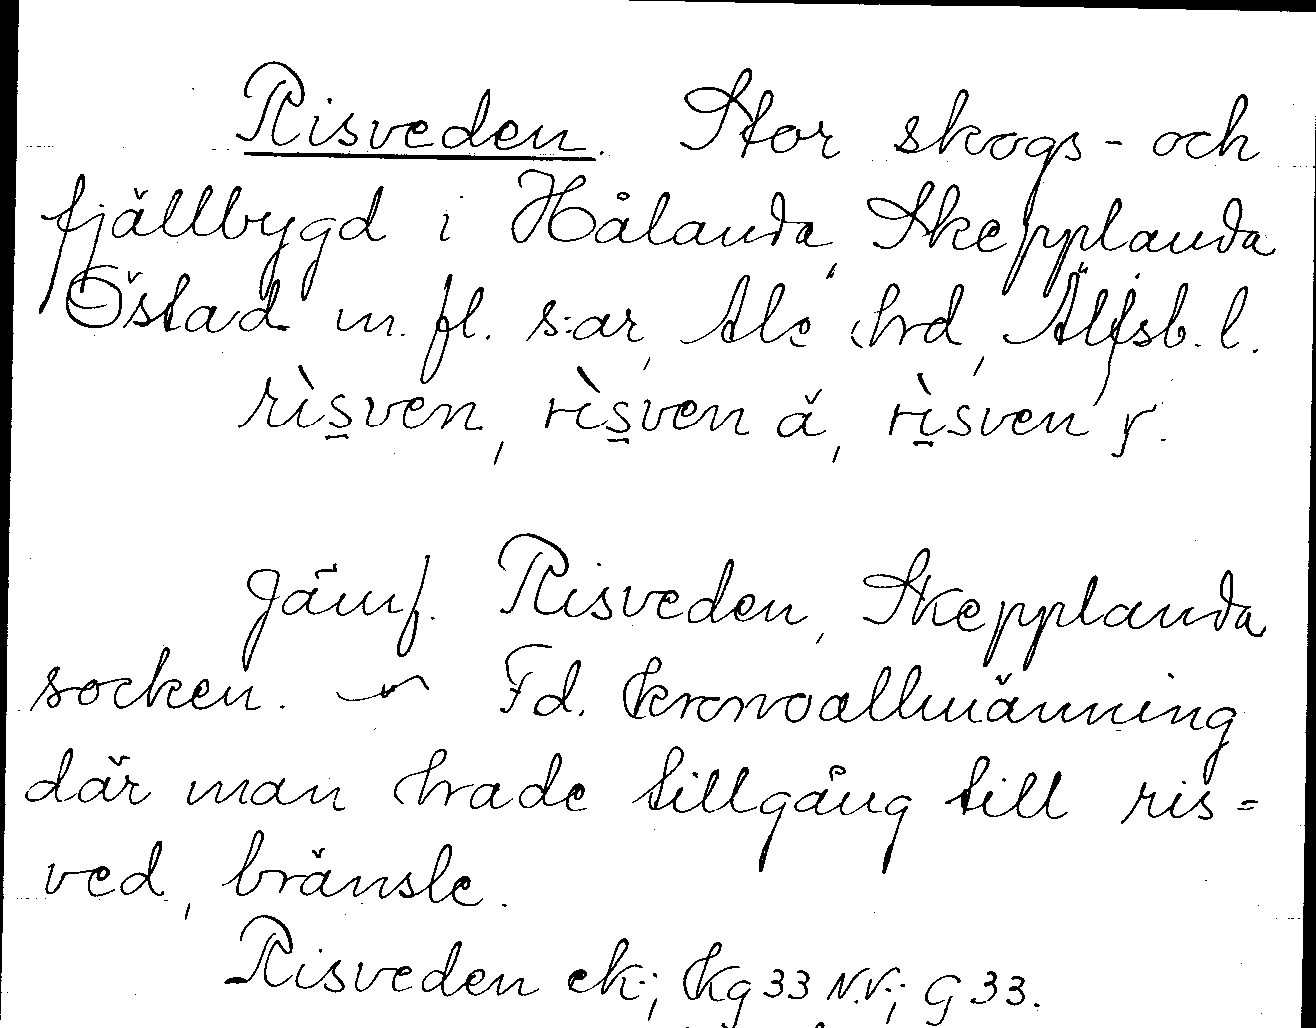 Risveden. Stor skogs- och
fjällbygd i Hålanda, Skepplanda
Östad m. fl. s:ar, Ale hrd, Älfsb. l.
rìs̱ven, rìs̱ven ä, rìs̱ven
Jämf. Risveden, Skepplanda
socken. ~ Fd. kronoallmänning
där man hade tillgång till ris=
ved, bränsle.
Risveden ek.; Kg 33 N.V.; G 33.